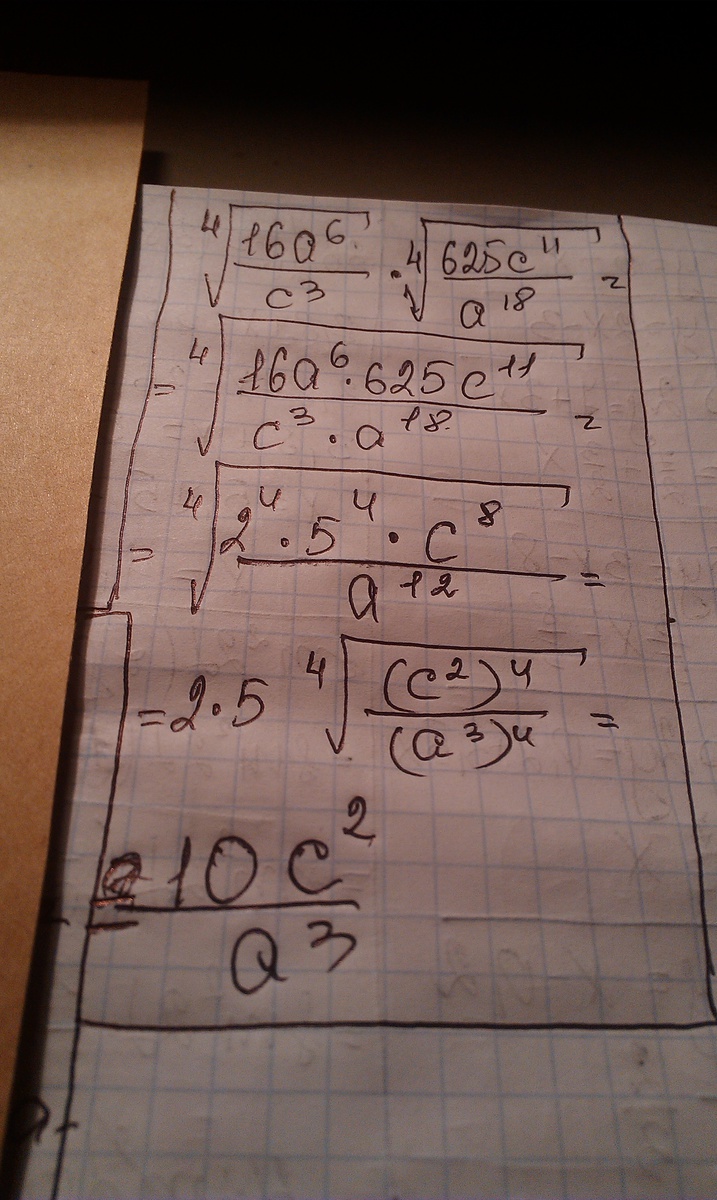 ⁴√(16a⁶/c³) · ⁴√(625c¹¹/a¹⁸) =
= ⁴√((16a⁶·625c¹¹)/(c³·a¹⁸)) =
= ⁴√((2⁴·5⁴·c⁸)/a¹²) =
= 2·5 ⁴√((c²)⁴/(a³)⁴) =
= 10c²/a³